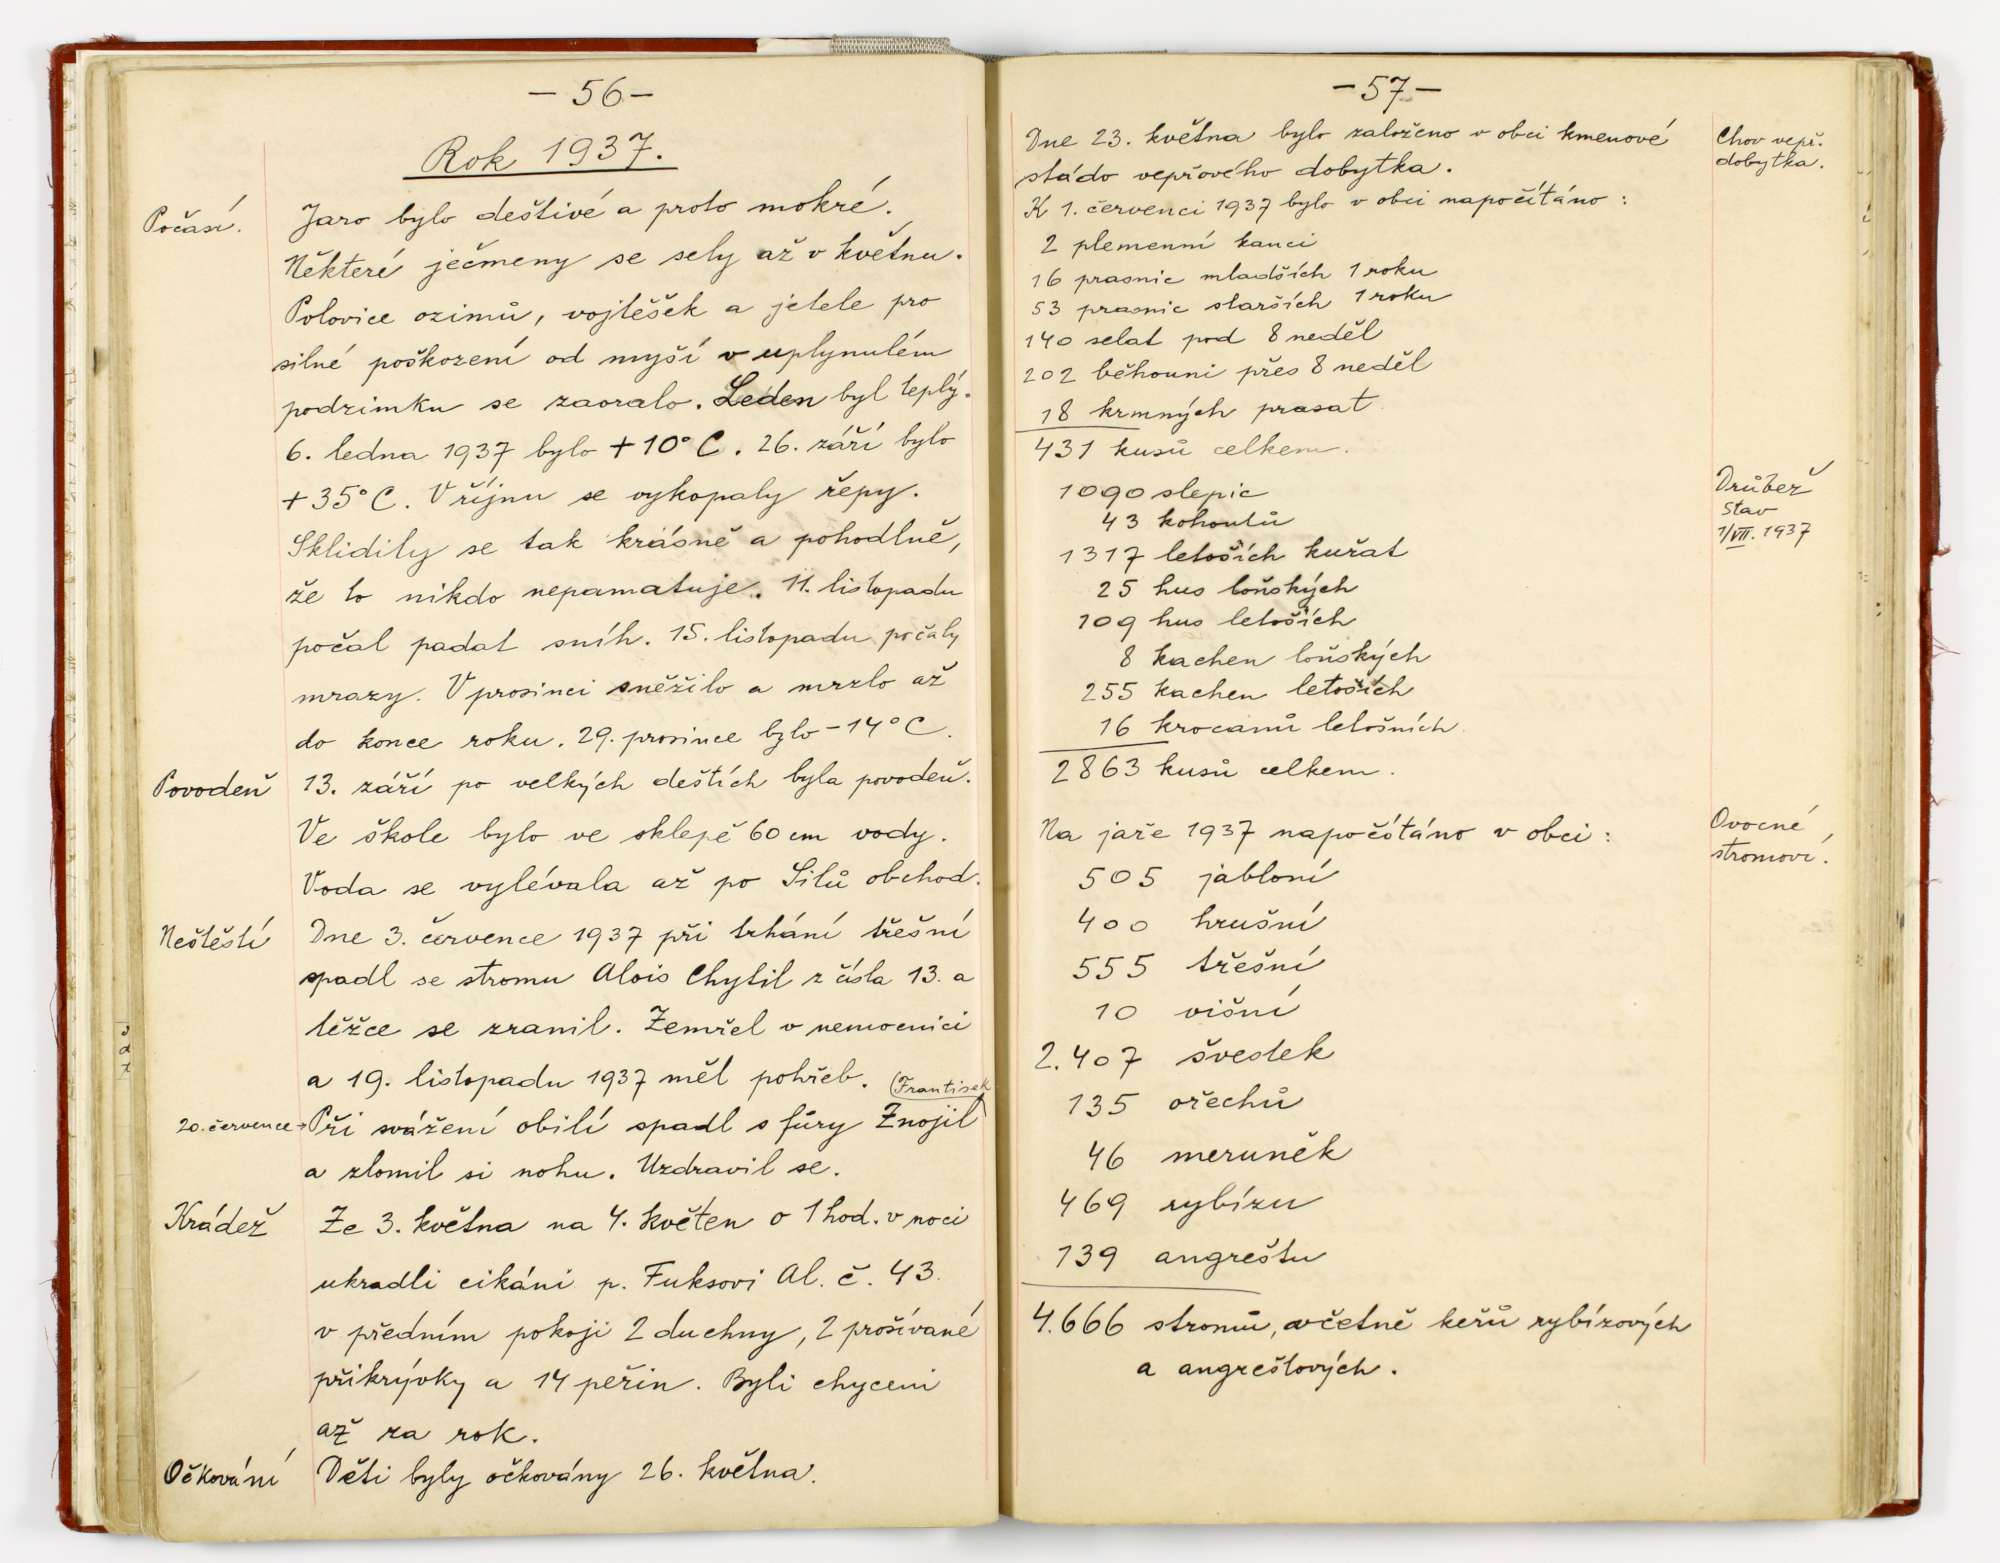 – 56 –
Rok 1937.
Počasí. Jaro bylo deštivé a proto mokré.
Některé ječmeny se sely až v květnu.
Polovice ozimů, vojtěšek a jetele pro
silné poškození od myší v uplynulém
podzimku se zaoralo. Leden byl teplý.
6. ledna 1937 bylo +10° C. 26. září bylo
+35° C. V říjnu se vykopaly řepy.
Sklidily se tak krásně a pohodlně,
že to nikdo nepamatuje. 11. listopadu
počal padat sníh. 15. listopadu počaly
mrazy. V prosinci sněžilo a mrzlo až
do konce roku. 29. prosince bylo –14° C.
Povodeň 13. září po velkých deštích byla povodeň.
Ve škole bylo ve sklepě 60 cm vody.
Voda se vylévala až po Silů obchod.
Neštěstí Dne 3. července 1937 při trhání třešní
spadl se stromu Alois Chytil z čísla 13. a
těžce se zranil. Zemřel v nemocnici
a 19. listopadu 1937 měl pohřeb. (Frantisek)
20. července → Při svážení obilí spadl s fůry Znojil
a zlomil si nohu. Uzdravil se.
Krádež Ze 3. května na 4. květen o 1 hod. v noci
ukradli cikáni p. Fuksovi Al. č. 43.
v předním pokoji 2 duchny, 2 prošívané
přikrývky a 14 peřin. Byli chyceni
až za rok.
Očkování Děti byly očkovány 26. května.
– 57 –
Dne 23. května bylo založeno v obci kmenové
stádo vepřového dobytka.
Chov vepř.
dobytka.
K 1. červenci 1937 bylo v obci napočítáno :
2 plemenní kanci
16 prasnic mladších 1 roku
53 prasnic starších 1 roku
140 selat pod 8 neděl
202 běhouni přes 8 neděl
18 krmných prasat
431 kusů celkem.
Drůbež
stav
1/VII. 1937
1090 slepic
43 kohoutů
1317 letoších kuřat
25 hus loňských
109 hus letoších
8 kachen loňských
255 kachen letoších
16 krocanů letošních
2863 kusů celkem.
Ovocné
stromoví.
Na jaře 1937 napočótáno v obci :
505 jabloní
400 hrušní
555 třešní
10 višní
2.407 švestek
135 ořechů
46 meruněk
469 rybízu
139 angreštu
4.666 stromů, včetně keřů rybízových
a angreštových.